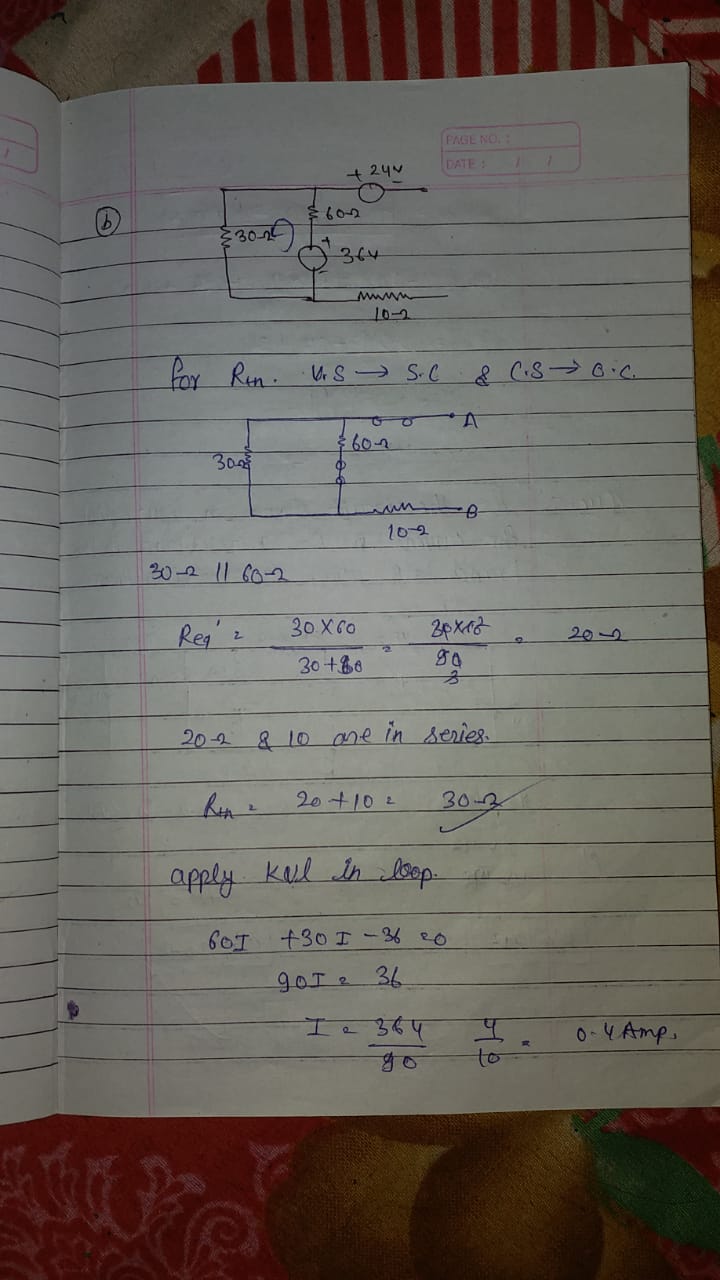 PAGE NO. :
DATE : / /
+ 24V -
(b)
60Ω
30Ω
+
36V
-
10Ω
for Rth. V.S → S.C & C.S → O.C.
A
60Ω
30Ω
B
10Ω
30Ω || 60Ω
Req' = 30X60 / 30+60 = 30X60 / 90 3 = 20Ω
20Ω & 10 are in series.
Rth = 20+10 = 30Ω
apply KVL in loop.
60I +30I -36 =0
90I = 36
I = 36 4 / 90 4/10 = 0.4 Amp.